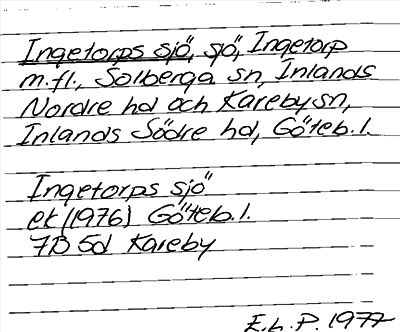 Ingetorps sjö, sjö, Ingetorp
m.fl., Solberga sn, Inlands
Nordre hd och Kareby sn,
Inlands Södre hd, Göteb. l.
Ingetorps sjö
ek (1976) Göteb. l.
7B 5d Kareby
E. h. P. 1977